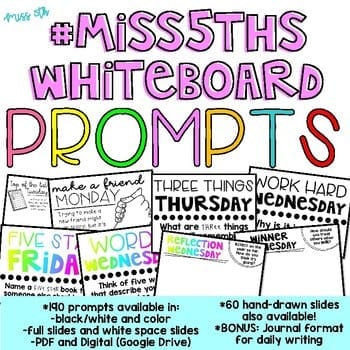 miss 5th
#MISS5THS
WHITEBOARD
PROMPTS
Top of the List
Tuesday
make a friend
MONDAY
Trying to make a
new friend might
THREE THINGS
THURSDAY
What are THREE things
WORK HARD
WEDNESDAY
Why is it
FIVE STAR
FRIDAY
Name a FIVE star
WORD
Wednesday
Think of five w
REFLECTION
WEDNESDAY
WINNER
WEDNESDAY
*190 prompts available in:
-black/white and color
-full slides and white space slides
-PDF and Digital (Google Drive)
*60 hand-drawn slides
also available!
*BONUS: Journal format
for daily writing